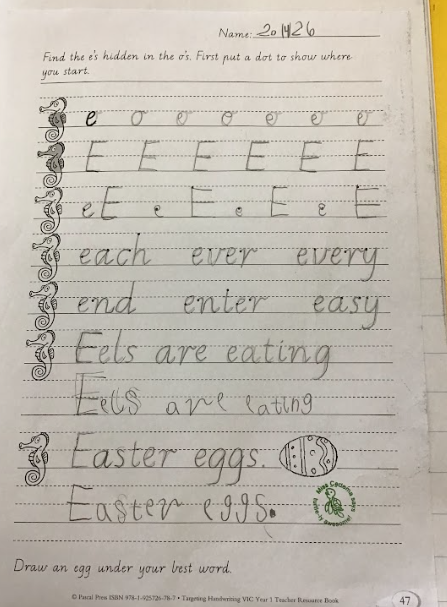 Name: 20/4/26
Find the e's hidden in the o's. First put a dot to show where
you start.
e o e o e e e
E E E E E E
e E e E e E e E
each ever every
end enter easy
Eels are eating
Eels are eating
Easter eggs.
Easter eggs.
Draw an egg under your best word.
© Pascal Press ISBN 978-1-925726-78-7 • Targeting Handwriting VIC Year 1 Teacher Resource Book
47